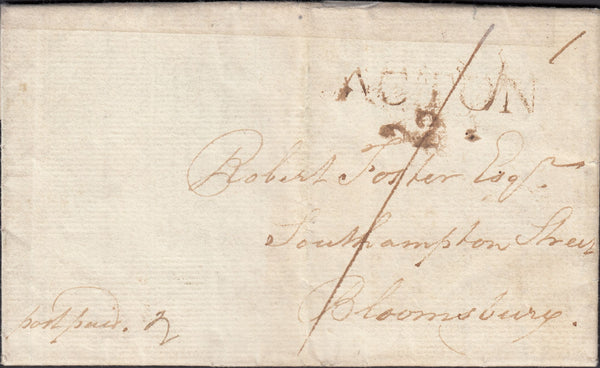 ACTON
Robert Foster Esqr.
Southampton Street
Bloomsbury.
post paid. 2